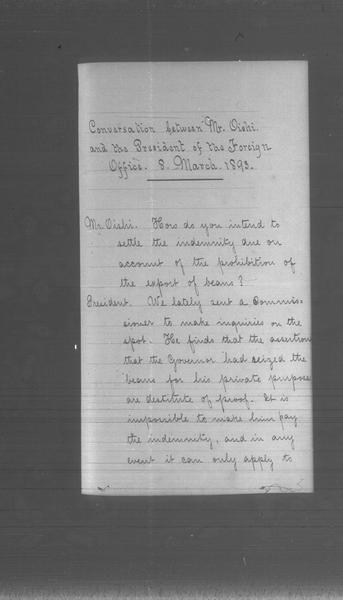 Conversation between Mr. Oishi
and the President of the Foreign
Office. 8. March. 1893.
Mr. Oishi. How do you intend to
settle the indemnity due on
account of the prohibition of
the export of beans?
President. We lately sent a Commis-
sioner to make inquiries on the
spot. He finds that the assertions
that the Governor had seized the
beans for his private purposes
are destitute of proof. It is
impossible to make him pay
the indemnity, and in any
event it can only apply to